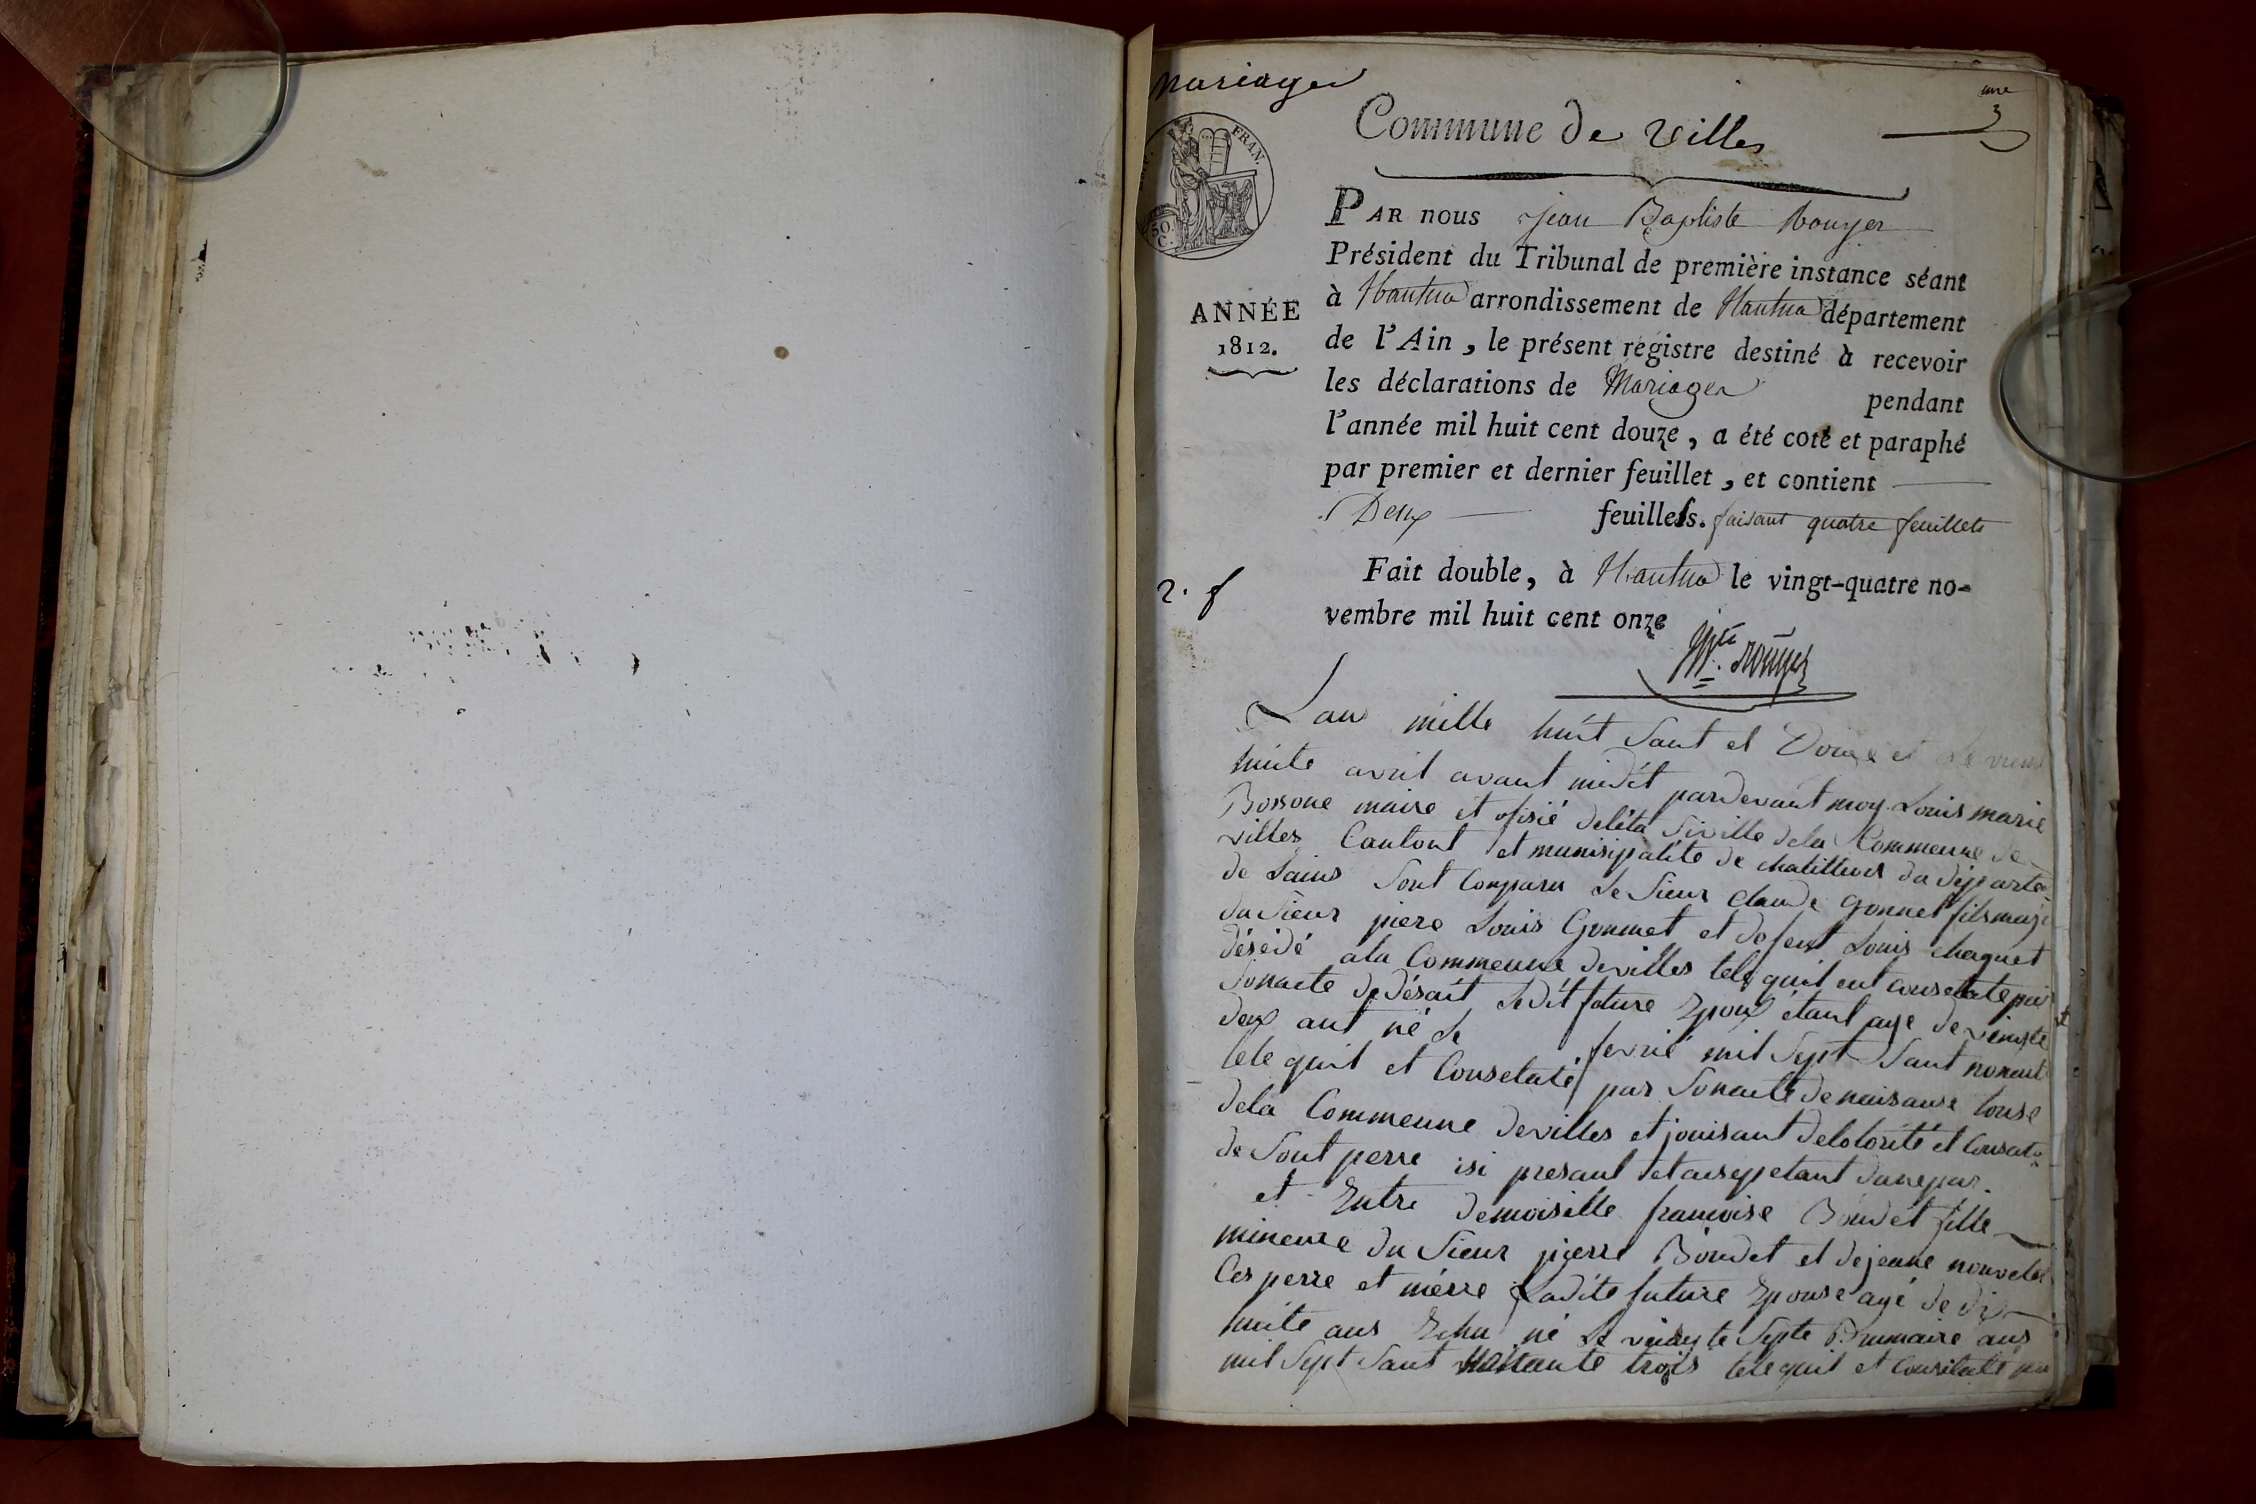 Mariages
une
3
Commune de Villes
FRAN.
50.
C.
PAR nous Jean Baptiste Rouyer
Président du Tribunal de première instance séant
à Nantua arrondissement de Nantua département
ANNÉE
1812.
de l'Ain, le présent régistre destiné à recevoir
les déclarations de Mariages pendant
l'année mil huit cent douze, a été coté et paraphé
par premier et dernier feuillet, et contient
Deux feuilles. faisant quatre feuillets
2. f
Fait double, à Nantua le vingt-quatre no-
vembre mil huit cent onze
Rouyer
Lan mille huit Sant et Douze et le
huite avril avant midit pardevant moy Louis marie
Bossone maire et ofisié deléta Siville dela Commeune de
villes Cantont et munisipalité de chatillion du départe
de Lains Sont Comparu Le Sieur Claude Gonnet fils maj
du Sieur piere Louis Gonnet et defeut Louis chaquet
désédé ala Commeune devilles tele quil ent Consetate par
Sonacte de désait ledit future Epoux étant age de vingte
deux ant né le fevrié mil Sept Sant nonant
tele quil et Consetaté par Sonacte denaisance
dela Commeune devilles et jouisant delotorité et
de Sont perre isi presant et
et Entre demoiselle francoise Boudet fille
mineure du Sieur pierre Boudet et dejeane nouvele
Ces perre et mérre Ladite future Epouse agé de dix
huite ans né Le Septe Brumaire ans
mil Sept Sant trois tele quil et Consetaté par